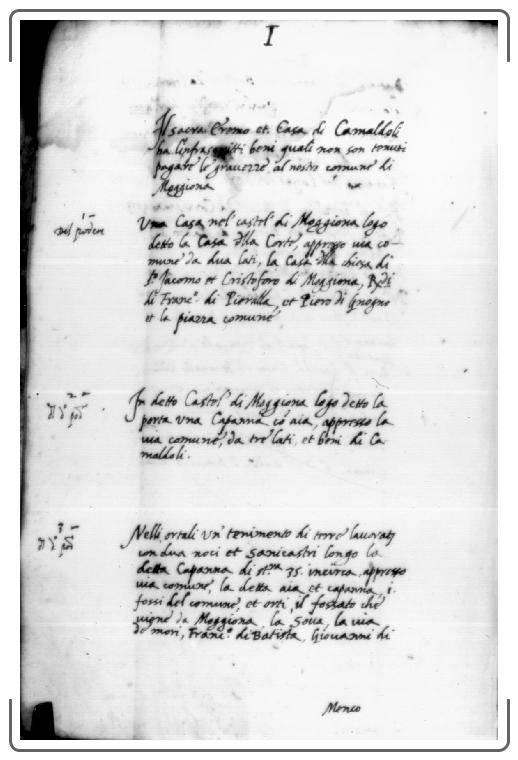 I
Il sacro Eremo et Casa di Camaldoli
ha l'infrascritti beni quali non son tenuti
pagare le gravezze al nostro comune di
Moggiona
1
nel podere
Una Casa nel castel' di Moggiona logo
detto la Casa della Corte, appresso via co-
mune da dua lati, la Casa della chiesa di
sto Jacomo et Cristoforo di Moggiona, Redi
di Franc.o di Pieralla, et Piero di Gnogno
et la piazza comune
2
In detto Castel' di Moggiona logo detto la
porta una Capanna co aia, appresso la
via comune, da tre lati, et beni di Ca-
maldoli.
3
Nelli ortali un' tenimento di terre lavorati
con dua noci et sanicastri longo la
detta Capanna di 35. incirca, appresso
via comune, la detta aia et capanna, i
fossi del comune, et orti, il fossato che
viene da Moggiona, la Sova, la via
de mori, Franc.o di Batista, Giovanni di
Menco